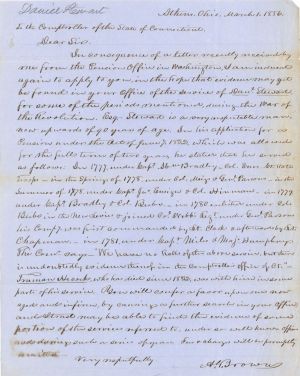 Daniel Stewart
Athens, Ohio, March 1. 1856.
To the Comptroller of the State of Connecticut,
Dear Sir.
In consequence of a letter recently received by
me from the Pension Office in Washington, I am induced
again to apply to you, in the hope that evidence may yet
be found in your Office of the service of Danl Stewart
for some of the periods mentioned, during the War of
the Revolution. Esq. Stewart is a very reputable man,
now upwards of 90 years of age. In his application for a
Pension under the Act of June 7. 1832, which was allowed
for the full term of two years, he stated that he served as
follows: In 1777, under Capt Bradley & Col.
troops - in the Spring of 1778, under Col. Meigs & Genl Parsons, in the
Summer of 1778, under Capt & Col. Hinman - in 1779
under Capt Bradley & Col. Beebe - in 1780 enlisted under Col.
Beebe, in the & joined Col. Webb's Regt under Genl Parsons
his Compy was first commanded by Lt. Clark afterwards by Capt
Chapman - in 1781, under Capt Miles & Maj. Humphrey.
The Comr says - We have no Rolls of the above service, but there
is undoubtedly evidence thereof in the Comptroller's office of Ct."
Truman who has died since 1832, was with him in some
part of this service. You will confer a favor upon a now
aged and infirm, by causing a further search in your office,
and I trust may be able to find the evidence of some
portion of the service referred to, under so well known officers
and during such a series of years. Your charge will be promptly
remitted.
Very respectfully
A. G. Brown